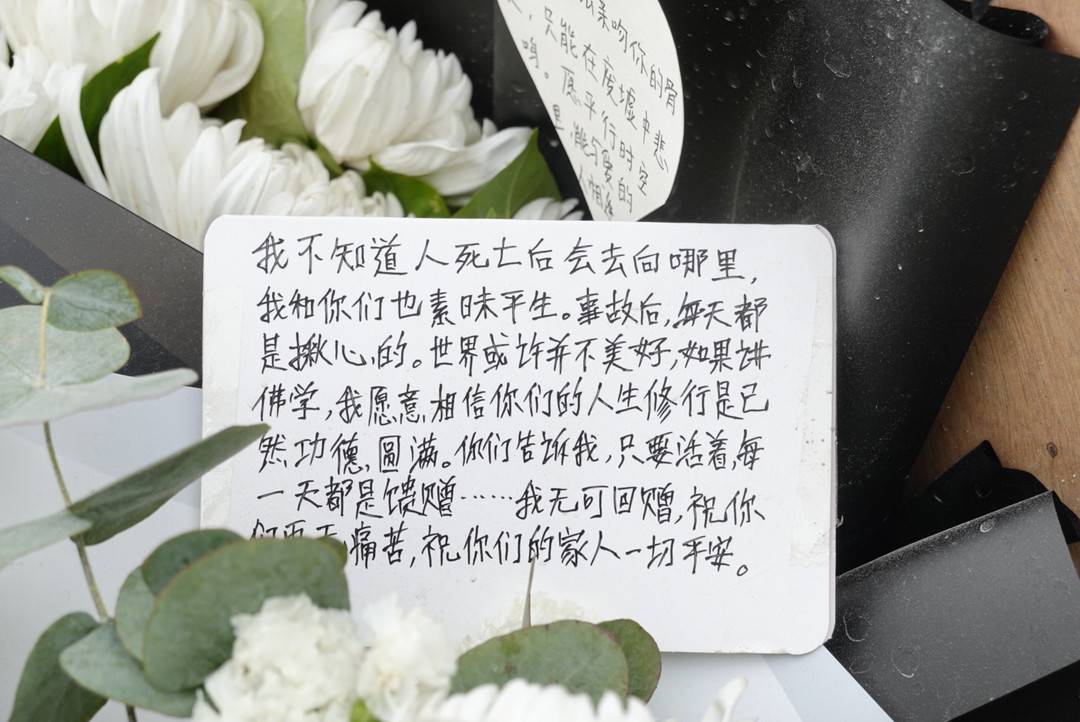 亲吻你的骨
,只能在废墟中悲
鸣。愿平行时空
里,能与爱的
人相
我不知道人死亡后会去向哪里,
我和你们也素昧平生。事故后,每天都
是揪心的。世界或许并不美好,如果讲
佛学,我愿意相信你们的人生修行是已
然功德圆满。你们告诉我,只要活着,每
一天都是馈赠……我无可回赠,祝你
们再无痛苦,祝你们的家人一切平安。